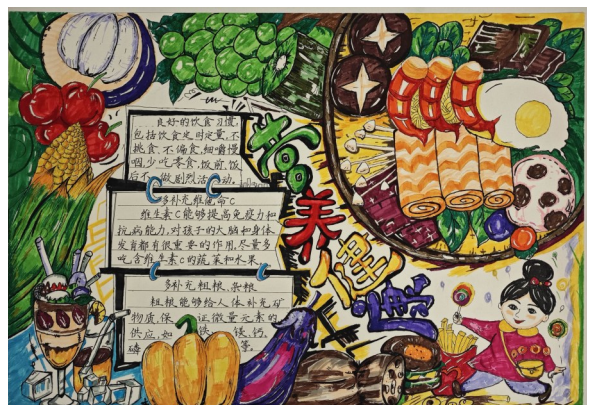 良好的饮食习惯,
包括饮食定时定量,不
挑食,不偏食,细嚼慢
咽,少吃零食,饭前、饭
后不做剧烈活动。
多补充维他命C
维生素C能够提高免疫力和
抗病能力,对孩子的大脑和身体
发育都有很重要的作用,尽量多
吃含维生素C的蔬菜和水果。
多补充粗粮、杂粮
粗粮能够给人体补充矿
物质,保证微量元素的
供应,如铁、镁、钙、
磷等。
营
养
健
康